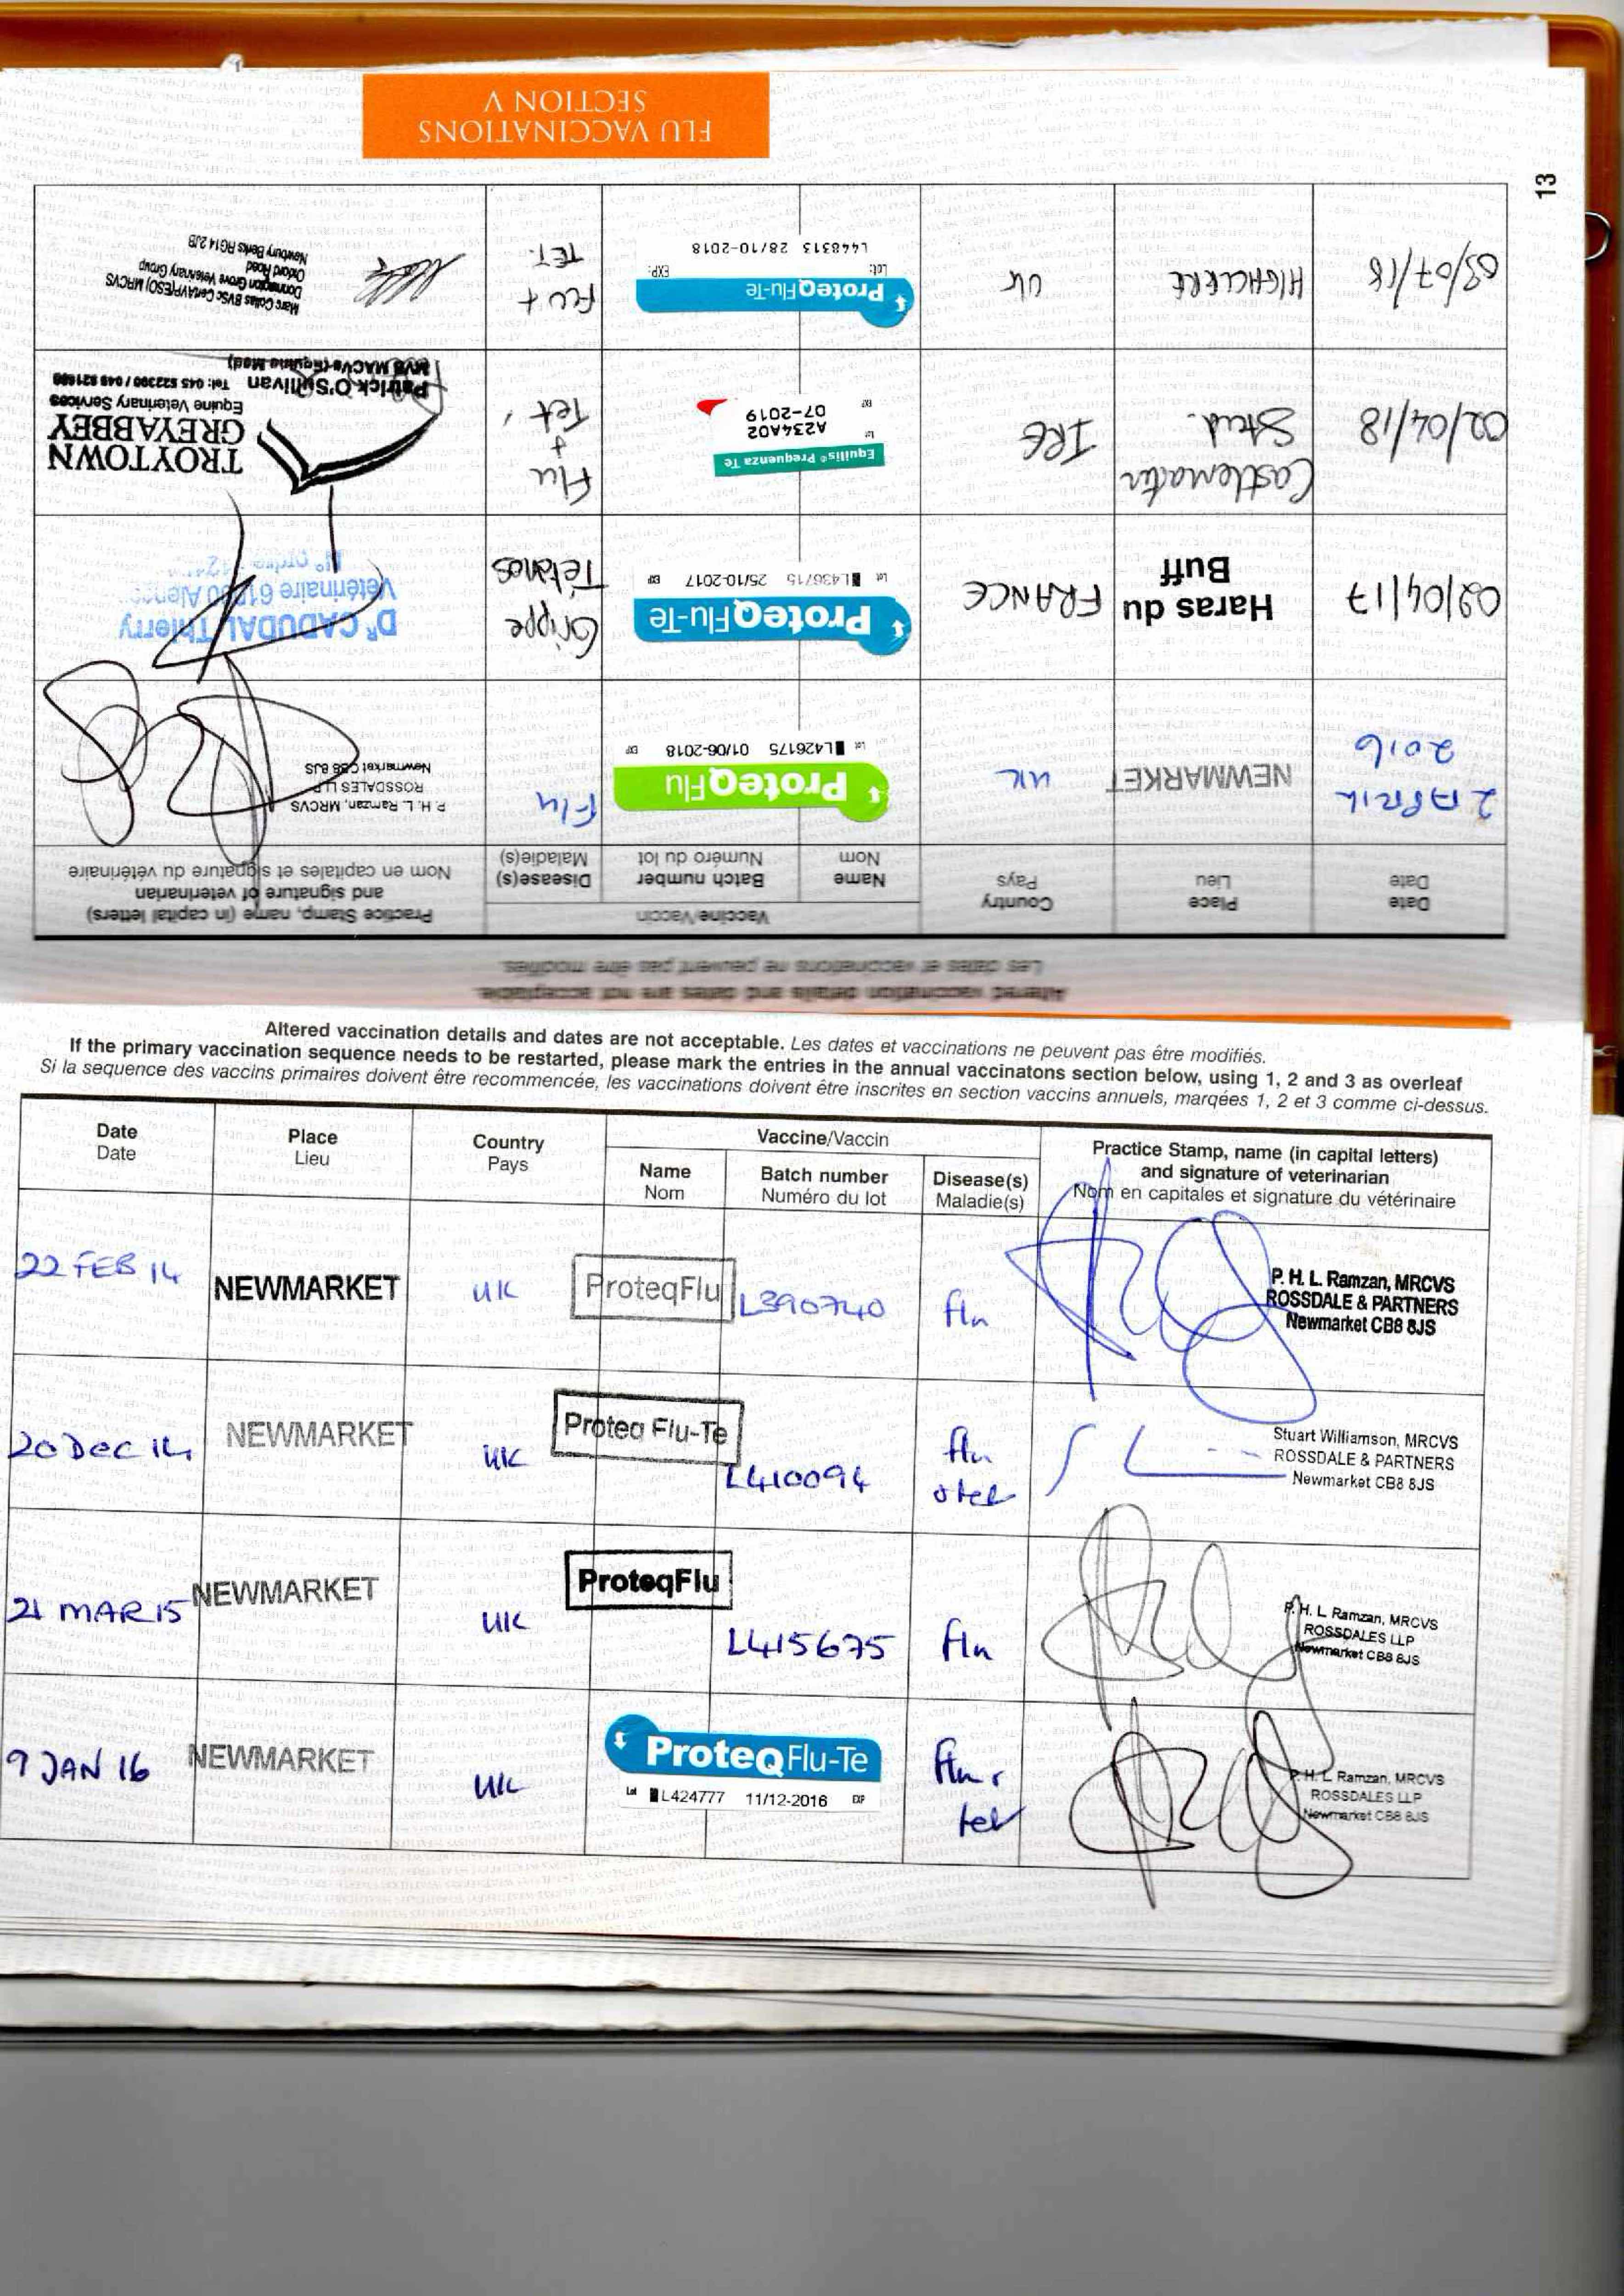 FLU VACCINATIONS
SECTION V
13
Altered vaccination details and dates are not acceptable.
Les dates et vaccinations ne peuvent pas être modifiés.
Date Date
Place Lieu
Country Pays
Vaccine/Vaccin
Name Nom
Batch number Numéro du lot
Disease(s) Maladie(s)
Practice Stamp, name (in capital letters)
and signature of veterinarian
Nom en capitales et signature du vétérinaire
2 APRIL 2016
NEWMARKET
UK
ProteqFlu
Lot L426175 01/06-2018 EXP
Flu
P. H. L. Ramzan, MRCVS
ROSSDALES LLP
Newmarket CB8 8JS
09/04/17
Haras du Buff
FRANCE
ProteqFlu-Te
Lot L436715 25/10-2017 EXP
Grippe
Tétanos
Dr CADUDAL Thierry
Vétérinaire
02/04/18
Castlemartin
Stud.
IRE
Equilis® Prequenza Te
Lot A234A02
EXP 07-2019
Flu
+
Tet,
TROYTOWN
GREYABBEY
Equine Veterinary Services
Patrick O'Sullivan Tel: 045 522390 /
MVB MACVs (Equine Med)
03/07/18
HIGHCLERE
UK
ProteqFlu-Te
Lot: EXP:
L448313 28/10-2018
FLU +
TET.
Marc Collas BVSc CertAVP(ESO) MRCVS
Donnington Grove Veterinary Group
Oxford Road
Newbury Berks RG14 2JB
Altered vaccination details and dates are not acceptable. Les dates et vaccinations ne peuvent pas être modifiés.
If the primary vaccination sequence needs to be restarted, please mark the entries in the annual vaccinatons section below, using 1, 2 and 3 as overleaf
Si la sequence des vaccins primaires doivent être recommencée, les vaccinations doivent être inscrites en section vaccins annuels, marqées 1, 2 et 3 comme ci-dessus.
Date Date
Place Lieu
Country Pays
Vaccine/Vaccin
Name Nom
Batch number Numéro du lot
Disease(s) Maladie(s)
Practice Stamp, name (in capital letters)
and signature of veterinarian
Nom en capitales et signature du vétérinaire
22 FEB 14
NEWMARKET
UK
ProteqFlu
L390740
flu
P. H. L. Ramzan, MRCVS
ROSSDALE & PARTNERS
Newmarket CB8 8JS
20 Dec 14
NEWMARKET
UK
Proteq Flu-Te
L410094
flu
Stuart Williamson, MRCVS
ROSSDALE & PARTNERS
Newmarket CB8 8JS
21 MAR 15
NEWMARKET
UK
ProteqFlu
L415675
flu
P. H. L Ramzan, MRCVS
ROSSDALES LLP
Newmarket CB8 8JS
9 JAN 16
NEWMARKET
UK
ProteqFlu-Te
Lot L424777 11/12-2016 EXP
flu +
tet
P. H. L Ramzan, MRCVS
ROSSDALES LLP
Newmarket CB8 8JS